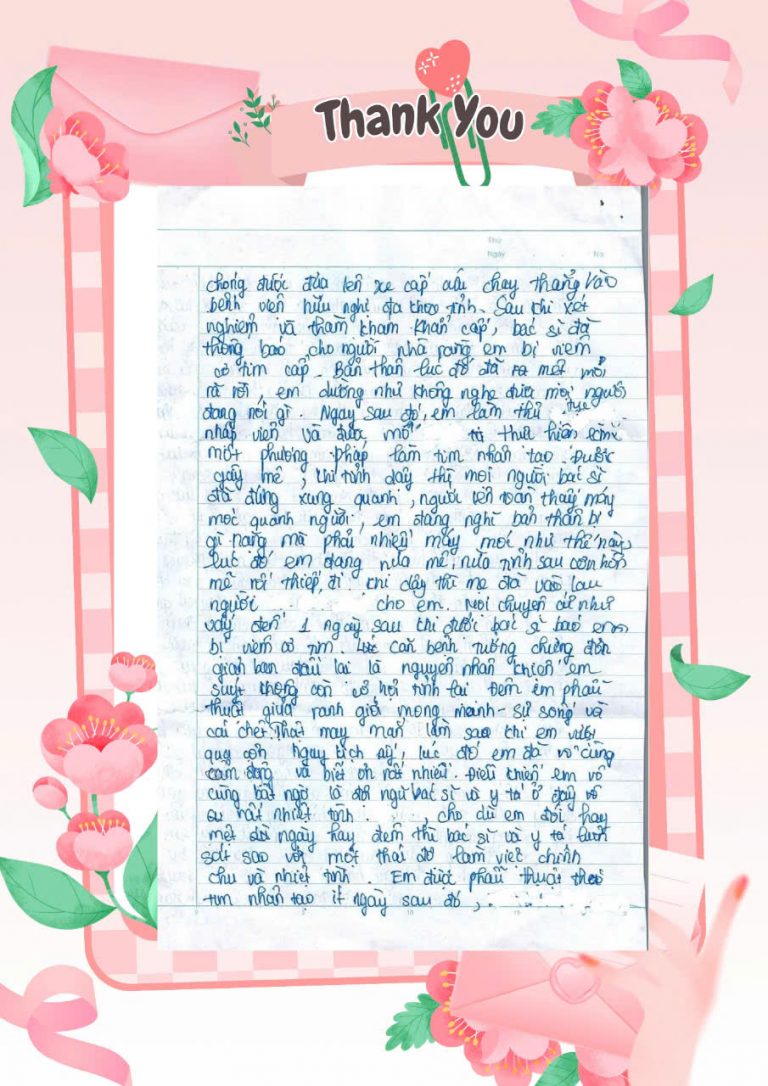 Thank You
Thứ
Ngày No
chóng được đưa lên xe cấp cứu chạy thẳng vào
bệnh viện hữu nghị đa khoa tỉnh. Sau khi xét
nghiệm và thăm khám khẩn cấp, bác sĩ đã
thông báo cho người nhà rằng em bị viêm
cơ tim cấp. Bản thân lúc đó đã mệt mỏi
rã rời, em dường như không nghe được mọi người
đang nói gì. Ngay sau đó, em làm thủ tục
nhập viện và được mổ từ thực hiện
một phương pháp làm tim nhân tạo. Được
gây mê, khi tỉnh dậy thì mọi người bác sĩ
đã đứng xung quanh, người lên toàn thấy máy
móc quanh người, em đang nghĩ bản thân bị
gì nặng mà phải nhiều máy móc như thế này,
lúc đó em đang nửa mê, nửa tỉnh sau cơn hôn
mê rồi thiếp đi. Khi dậy thì mẹ đã vào lau
người cho em. Mọi chuyện cứ như
vậy đến 1 ngày sau khi được bác sĩ báo em
bị viêm cơ tim. Lúc căn bệnh tưởng chừng đơn
giản ban đầu lại là nguyên nhân khiến em
suýt không còn cơ hội tỉnh lại. Đêm em phẫu
thuật giữa ranh giới mong manh - sự sống và
cái chết. Thật may mắn làm sao khi em vượt
qua cơn nguy kịch ấy, lúc đó em đã vô cùng
cảm động và biết ơn rất nhiều. Điều khiến em vô
cùng bất ngờ là đội ngũ bác sĩ và y tá ở đây vô
cùng nhiệt tình, cho dù em đói hay
mệt dù ngày hay đêm thì bác sĩ và y tá luôn
sát sao với một thái độ làm việc chỉnh
chu và nhiệt tình. Em được phẫu thuật tháo
tim nhân tạo ít ngày sau đó,